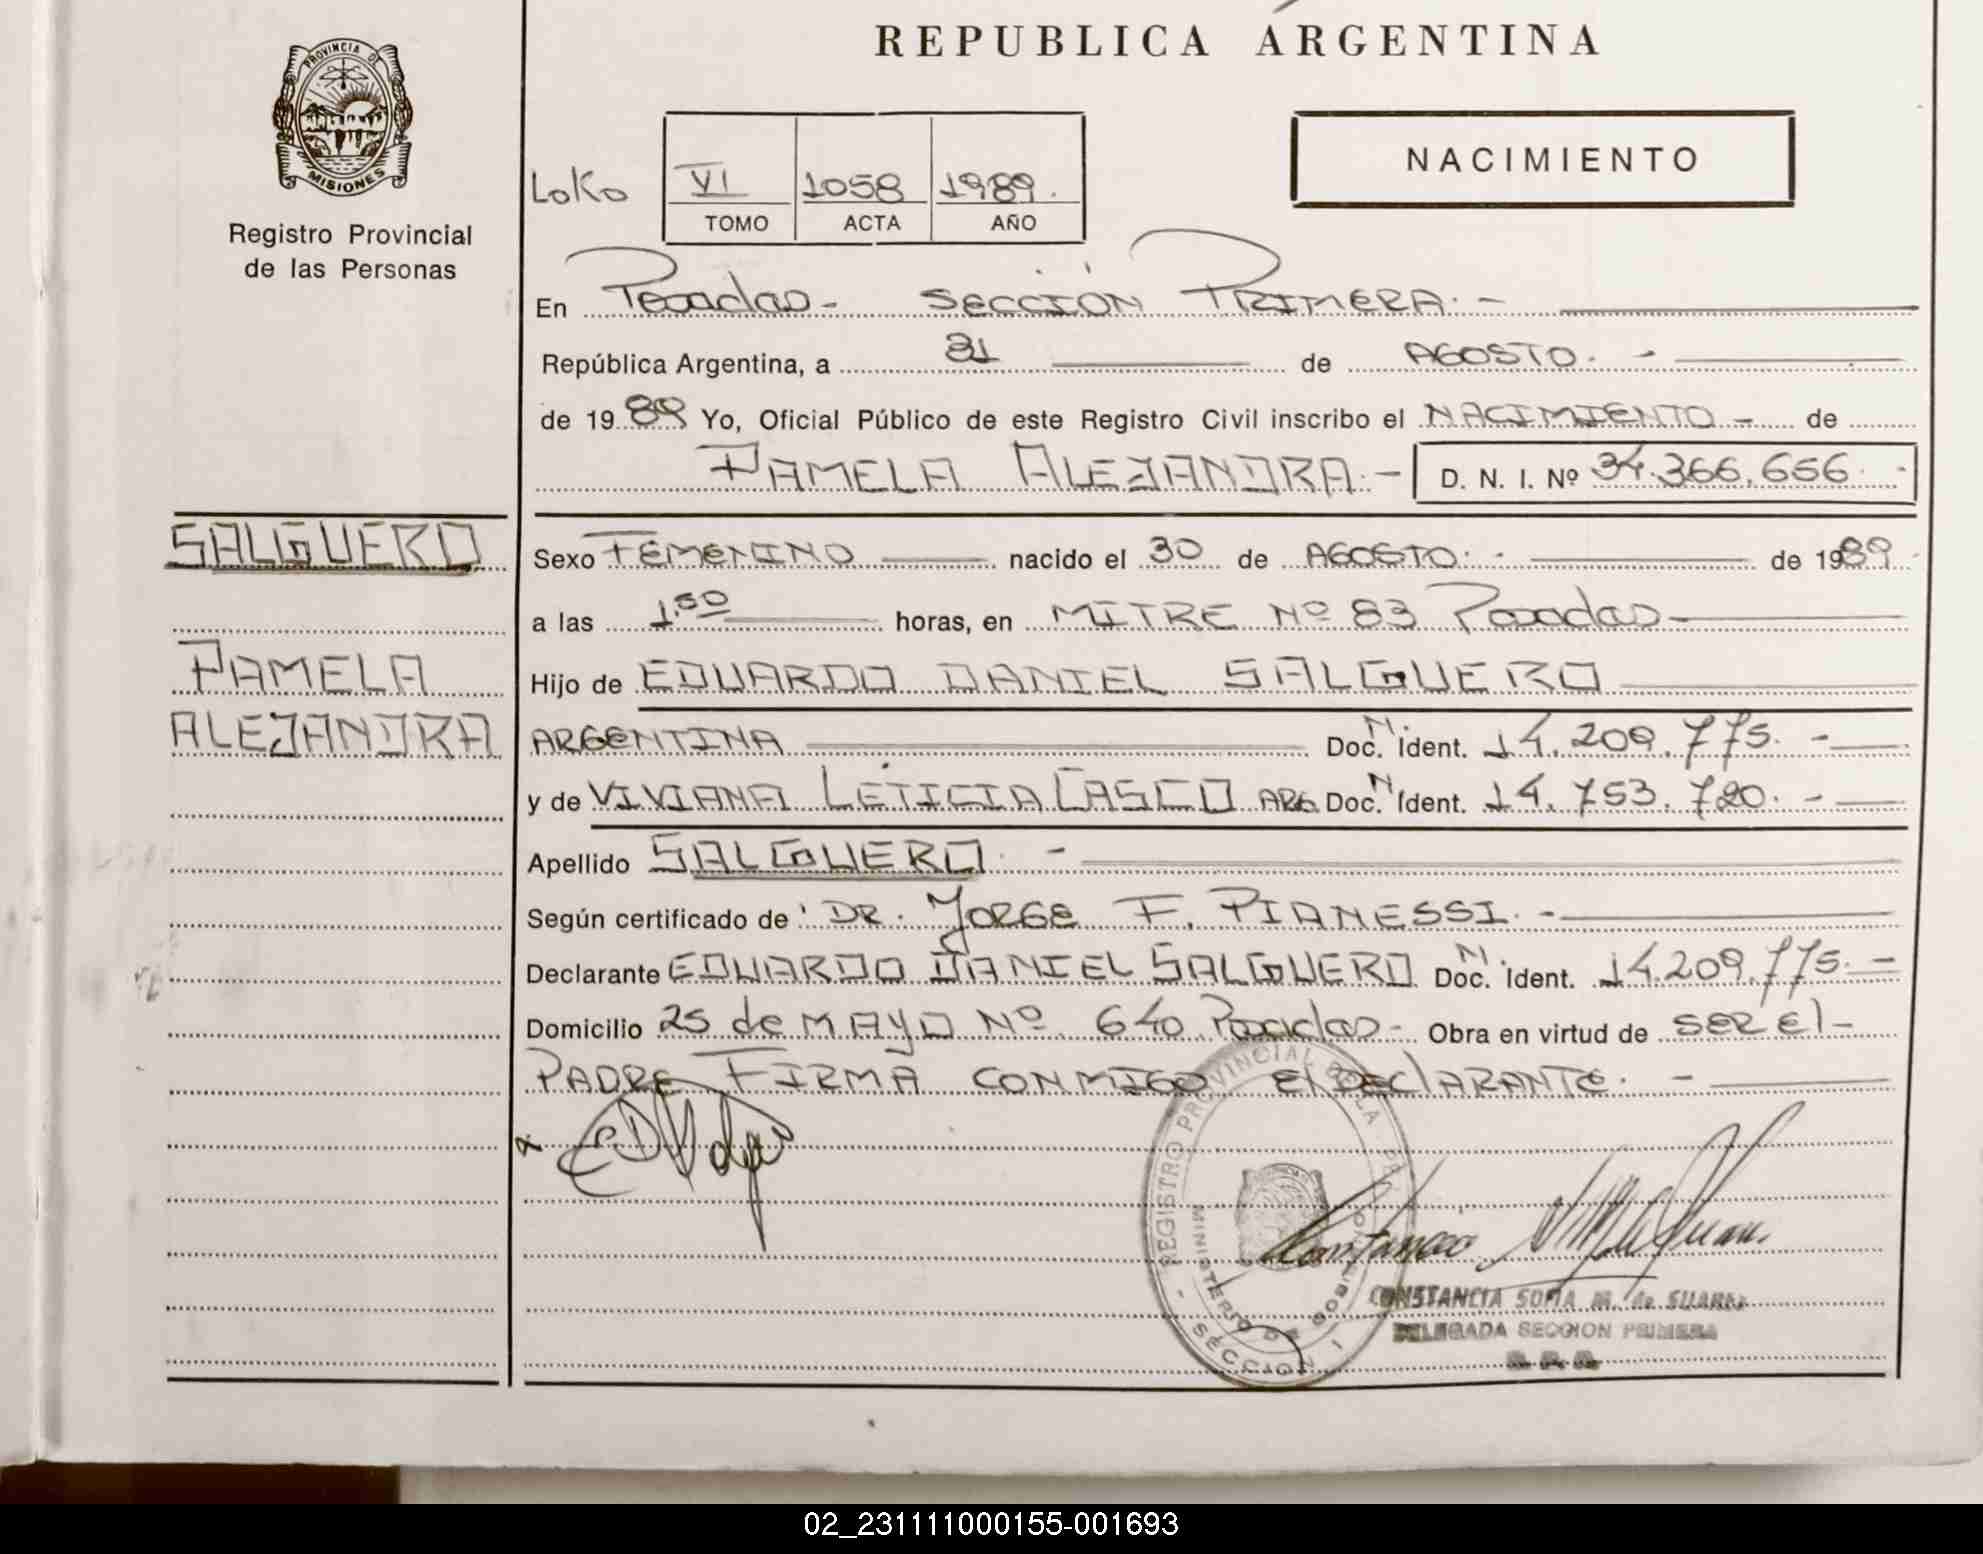 REPUBLICA ARGENTINA
PROVINCIA DE
MISIONES
Registro Provincial
de las Personas
NACIMIENTO
LoKo
VI 1058 1989.
TOMO ACTA AÑO
En Posadas- SECCIÓN PRIMERA.-
República Argentina, a 31 de AGOSTO.-
de 1989 Yo, Oficial Público de este Registro Civil inscribo el NACIMIENTO- de
PAMELA ALEJANDRA.- D. N. I. Nº 34.366.656.-
SALGUERO
PAMELA
ALEJANDRA
Sexo FEMENINO nacido el 30 de AGOSTO.- de 1989.
a las 1.50 horas, en MITRE Nº 83 Posadas
Hijo de EDUARDO DANIEL SALGUERO
ARGENTINA Doc. N. Ident. 14.209.775.-
y de VIVIANA LETICIA CASCO ARG Doc. N Ident. 14.753.720.-
Apellido SALGUERO.-
Según certificado de DR. JORGE F. PIANESSI.-
Declarante EDUARDO DANIEL SALGUERO Doc. N. Ident. 14.209.775.-
Domicilio 25 de MAYO Nº 640 Posadas- Obra en virtud de SER El-
PADRE FIRMA CONMIGO El DEClARANTE.-
REGISTRO PROVINCIAL DE LA
MINISTERIO DE GOBIERNO
SECCION 1
Constancia
CONSTANCIA SOFIA M. de SUAREZ
DELEGADA SECCION PRIMERA
02_231111000155-001693